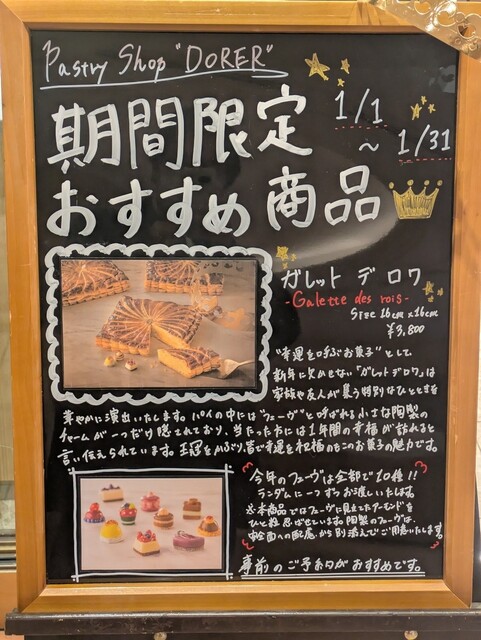 Pastry Shop "DORER"
期間限定
1/1
～ 1/31
おすすめ商品
ガレット デ ロワ
-Galette des rois-
Size 16cm×16cm
¥3,800
"幸運を呼ぶお菓子"として
新年に欠かせない「ガレットデロワ」は
家族や友人が集う特別なひとときを
華やかに演出いたします。パイの中には"フェーヴ"と呼ばれる小さな陶製の
チャームが一つだけ隠されており、当たった方には1年間の幸福が訪れると
言い伝えられています。王冠をかぶり皆で幸運を祝福するのもこのお菓子の魅力です。
今年のフェーヴは全部で10種!!
ランダムに一つずつお渡しいたします。
※本商品ではフェーヴに見立てたアーモンドを
ひと粒忍ばせています。陶製のフェーヴは、
安全面への配慮から別添えでご用意いたします。
事前のご予約がおすすめです。